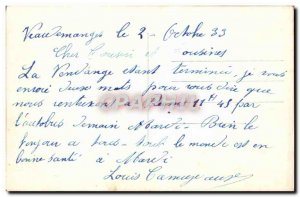 Vaudemanges le 2 - Octobre 33
Cher Cousin et Cousines
La Vendange etant terminée, je vous
envoie deux mots pour vous dire que
nous rentrerons à 11h 45 par
l'autobus demain Mardi - Bien le
bonjour a tous - tout le monde est en
bonne santé a Mardi
Louis